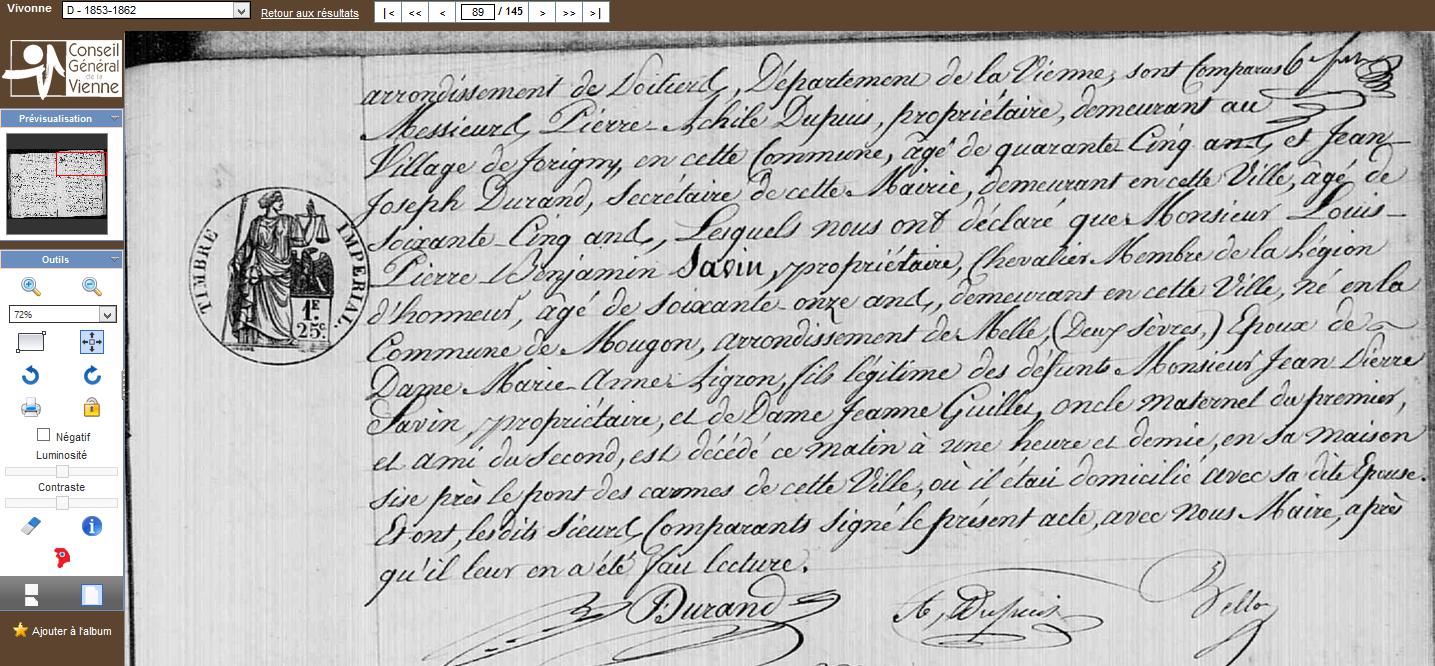 Vivonne
D - 1853-1862
Retour aux résultats
|<
<<
<
89 / 145
>
>>
>|
Conseil
Général
de la
Vienne
Prévisualisation
Outils
72%
Négatif
Luminosité
Contraste
Ajouter à l'album
TIMBRE IMPERIAL.
1F.
25c.
arrondissement de Poitiers, Département de la Vienne, sont Comparus
Messieurs Pierre-Achile Dupuis, propriétaire, demeurant au
Village de Jorigny, en cette Commune, âgé de quarante-Cinq ans, et Jean
Joseph Durand, Secrétaire de cette Mairie, demeurant en cette Ville, âgé de
soixante-Cinq ans, Lesquels nous ont déclaré que Monsieur Louis-
Pierre Benjamin Savin, propriétaire, Chevalier Membre de la Légion
d'honneur, âgé de soixante-onze ans, demeurant en cette Ville, né en la
Commune de Mougon, arrondissement de Melle, (Deux Sèvres,) Epoux de
Dame Marie-Anne Ligron, fils légitime des défunts Monsieur Jean Pierre
Savin, propriétaire, et de Dame Jeanne Guilles, oncle maternel du premier,
et ami du second, est décédé ce matin à une heure et demie, en sa maison
sise près le pont des carmes de cette Ville, où il était domicilié avec sa dite Epouse.
Et ont, lesdits Sieurs Comparants signé le présent acte, avec Nous Maire, après
qu'il leur en a été fait lecture.
Durand
A, Dupuis